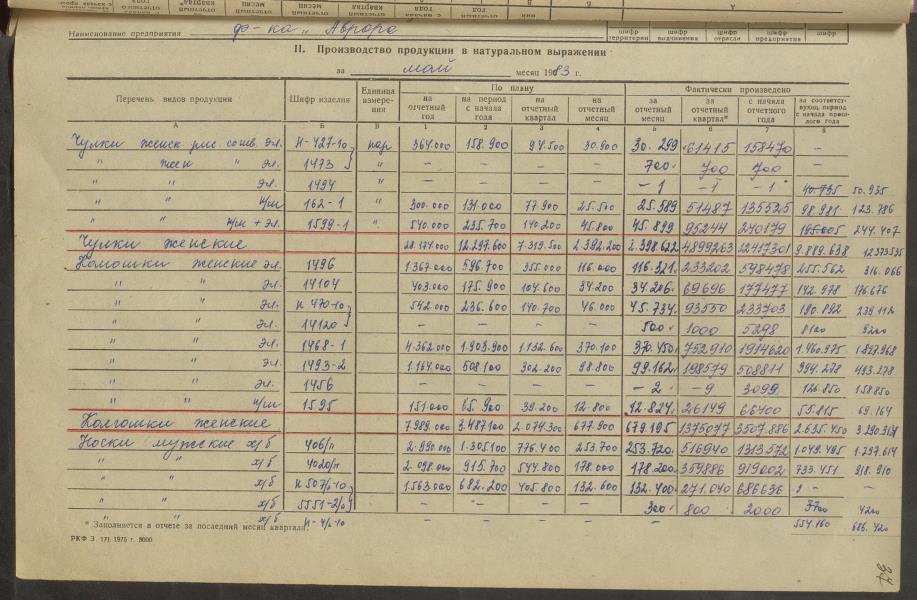 Наименование предприятия ф-ка „Аврора
шифр территории шифр подчинения шифр отрасли шифр предприятия шифр
II. Производство продукции в натуральном выражении
за май месяц 1983 г.
Перечень видов продукции Шифр изделия Единица измерения По плану Фактически произведено
на отчетный год на период с начала года на отчетный квартал на отчетный месяц за отчетный месяц за отчетный квартал* с начала отчетного года за соответствующий период с начала прошлого года
А Б В 1 2 3 4 5 6 7 8
Чулки женск. рис. сошв. эл. Н-427-10 пар 364.000 158.900 94.500 30.900 30.299 61415 158470 –
" жен " эл. 1473 " – – – – 700 700 700 –
" " эл. 1494 " – – – – –1 –1 –1 40.735 50.935
" " н/ш 162-1 " 300.000 131.000 77.900 25.500 25.589 51487 135525 98.981 123.786
" " н/ш + эл. 1599-1 " 540.000 235.700 140.200 45.800 45.899 95244 240179 244.407
Чулки женские 28.174.000 12.297.600 7.319.500 2.392.200 2.398.622 4899263 12417301 9.889.638 12373535
Колготки женские эл. 1496 1.367.000 596.700 355.000 116.000 116.321 233202 598478 255.562 316.066
" " эл. 14104 403.000 175.900 104.600 34.200 34.206 69696 177477 142.978 176.676
" " эл. Н 470-10 542.000 236.600 140.700 46.000 45.734 93550 233703 190.892 239.112
" " эл. 14120 – – – – 500 1000 5298 8100 9200
" " эл. 1468-1 4.362.000 1.903.900 1.132.600 370.100 370.450 752910 1914620 1.460.975 1827.968
" " эл. 1493-2 1.164.000 508.100 302.200 98.800 99.162 198579 508811 394.278 493.278
" " эл. 1456 – – – – –2 –9 3099 126.850 158.850
" " н/ш 1595 151.000 65.900 39.200 12.800 12.824 26149 66400 55.815 69.164
Колготки женские 7.989.000 3.487.100 2.074.300 677.900 679.195 1375077 3507.886 2.635.450
Носки мужские х/б 406/п 2.990.000 1.305.100 776.400 253.700 253.720 516940 1313572 1.049.495 1.297.614
" " х/б 4020/п 2.098.000 915.700 544.800 178.000 178.200 359886 919002 733.451 918.910
" " х/б Н 507/п-10 1.563.000 682.200 405.800 132.600 132.400 271.040 686636 – –
" " х/б 5551-2/п – – – – 300 800 2000 3700 4200
" " х/б Н-4/п-10 – – – – – 554.160 686.420
* Заполняется в отчете за последний месяц квартала.
РКФ З. 171 1975 г. 5000